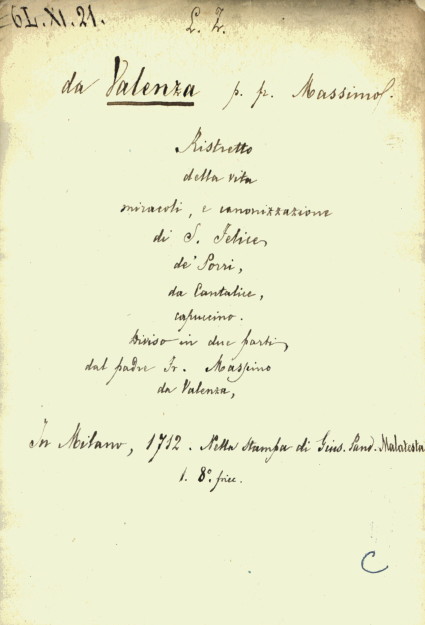 6L.XI.21.
L. Z.
da Valenza p. fr. Massimo.
Ristretto
della vita
miracoli, e canonizzazione
di S. Felice
de' Porri,
da Cantalice,
capuccino.
Diviso in due parti,
dal padre Fr. Massimo
da Valenza,
In Milano, 1712. Nella stampa di Gius. Pand. Malatesta
1. 8°.
C